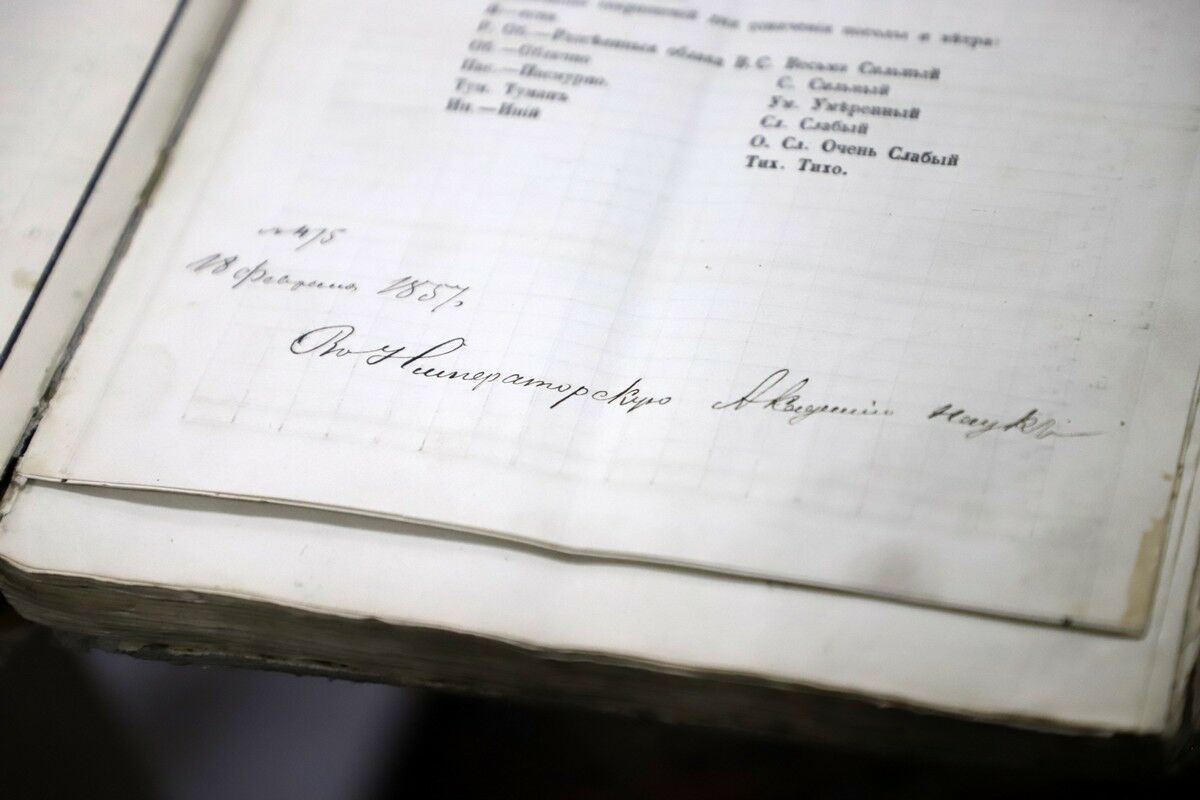 сокращеній для означенія погоды и вѣтра:
Р. Об.—Разсѣянныя облака
Об.—Облачно
Пас.—Пасмурно.
Тум. Туманъ
Ин.—Иней
В. С. Весьма Сильный
С. Сильный
Ум. Умѣренный
Сл. Слабый
О. Сл. Очень Слабый
Тих. Тихо.
№ 475
18 февраля 1857,
Въ Императорскую Академію наукъ